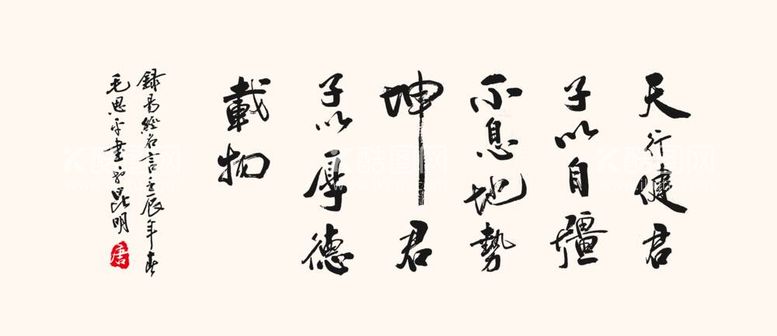 天行健君
子以自疆
不息地勢
坤君
子以厚德
載物
錄易經名言壬辰年春
毛思平書於昆明